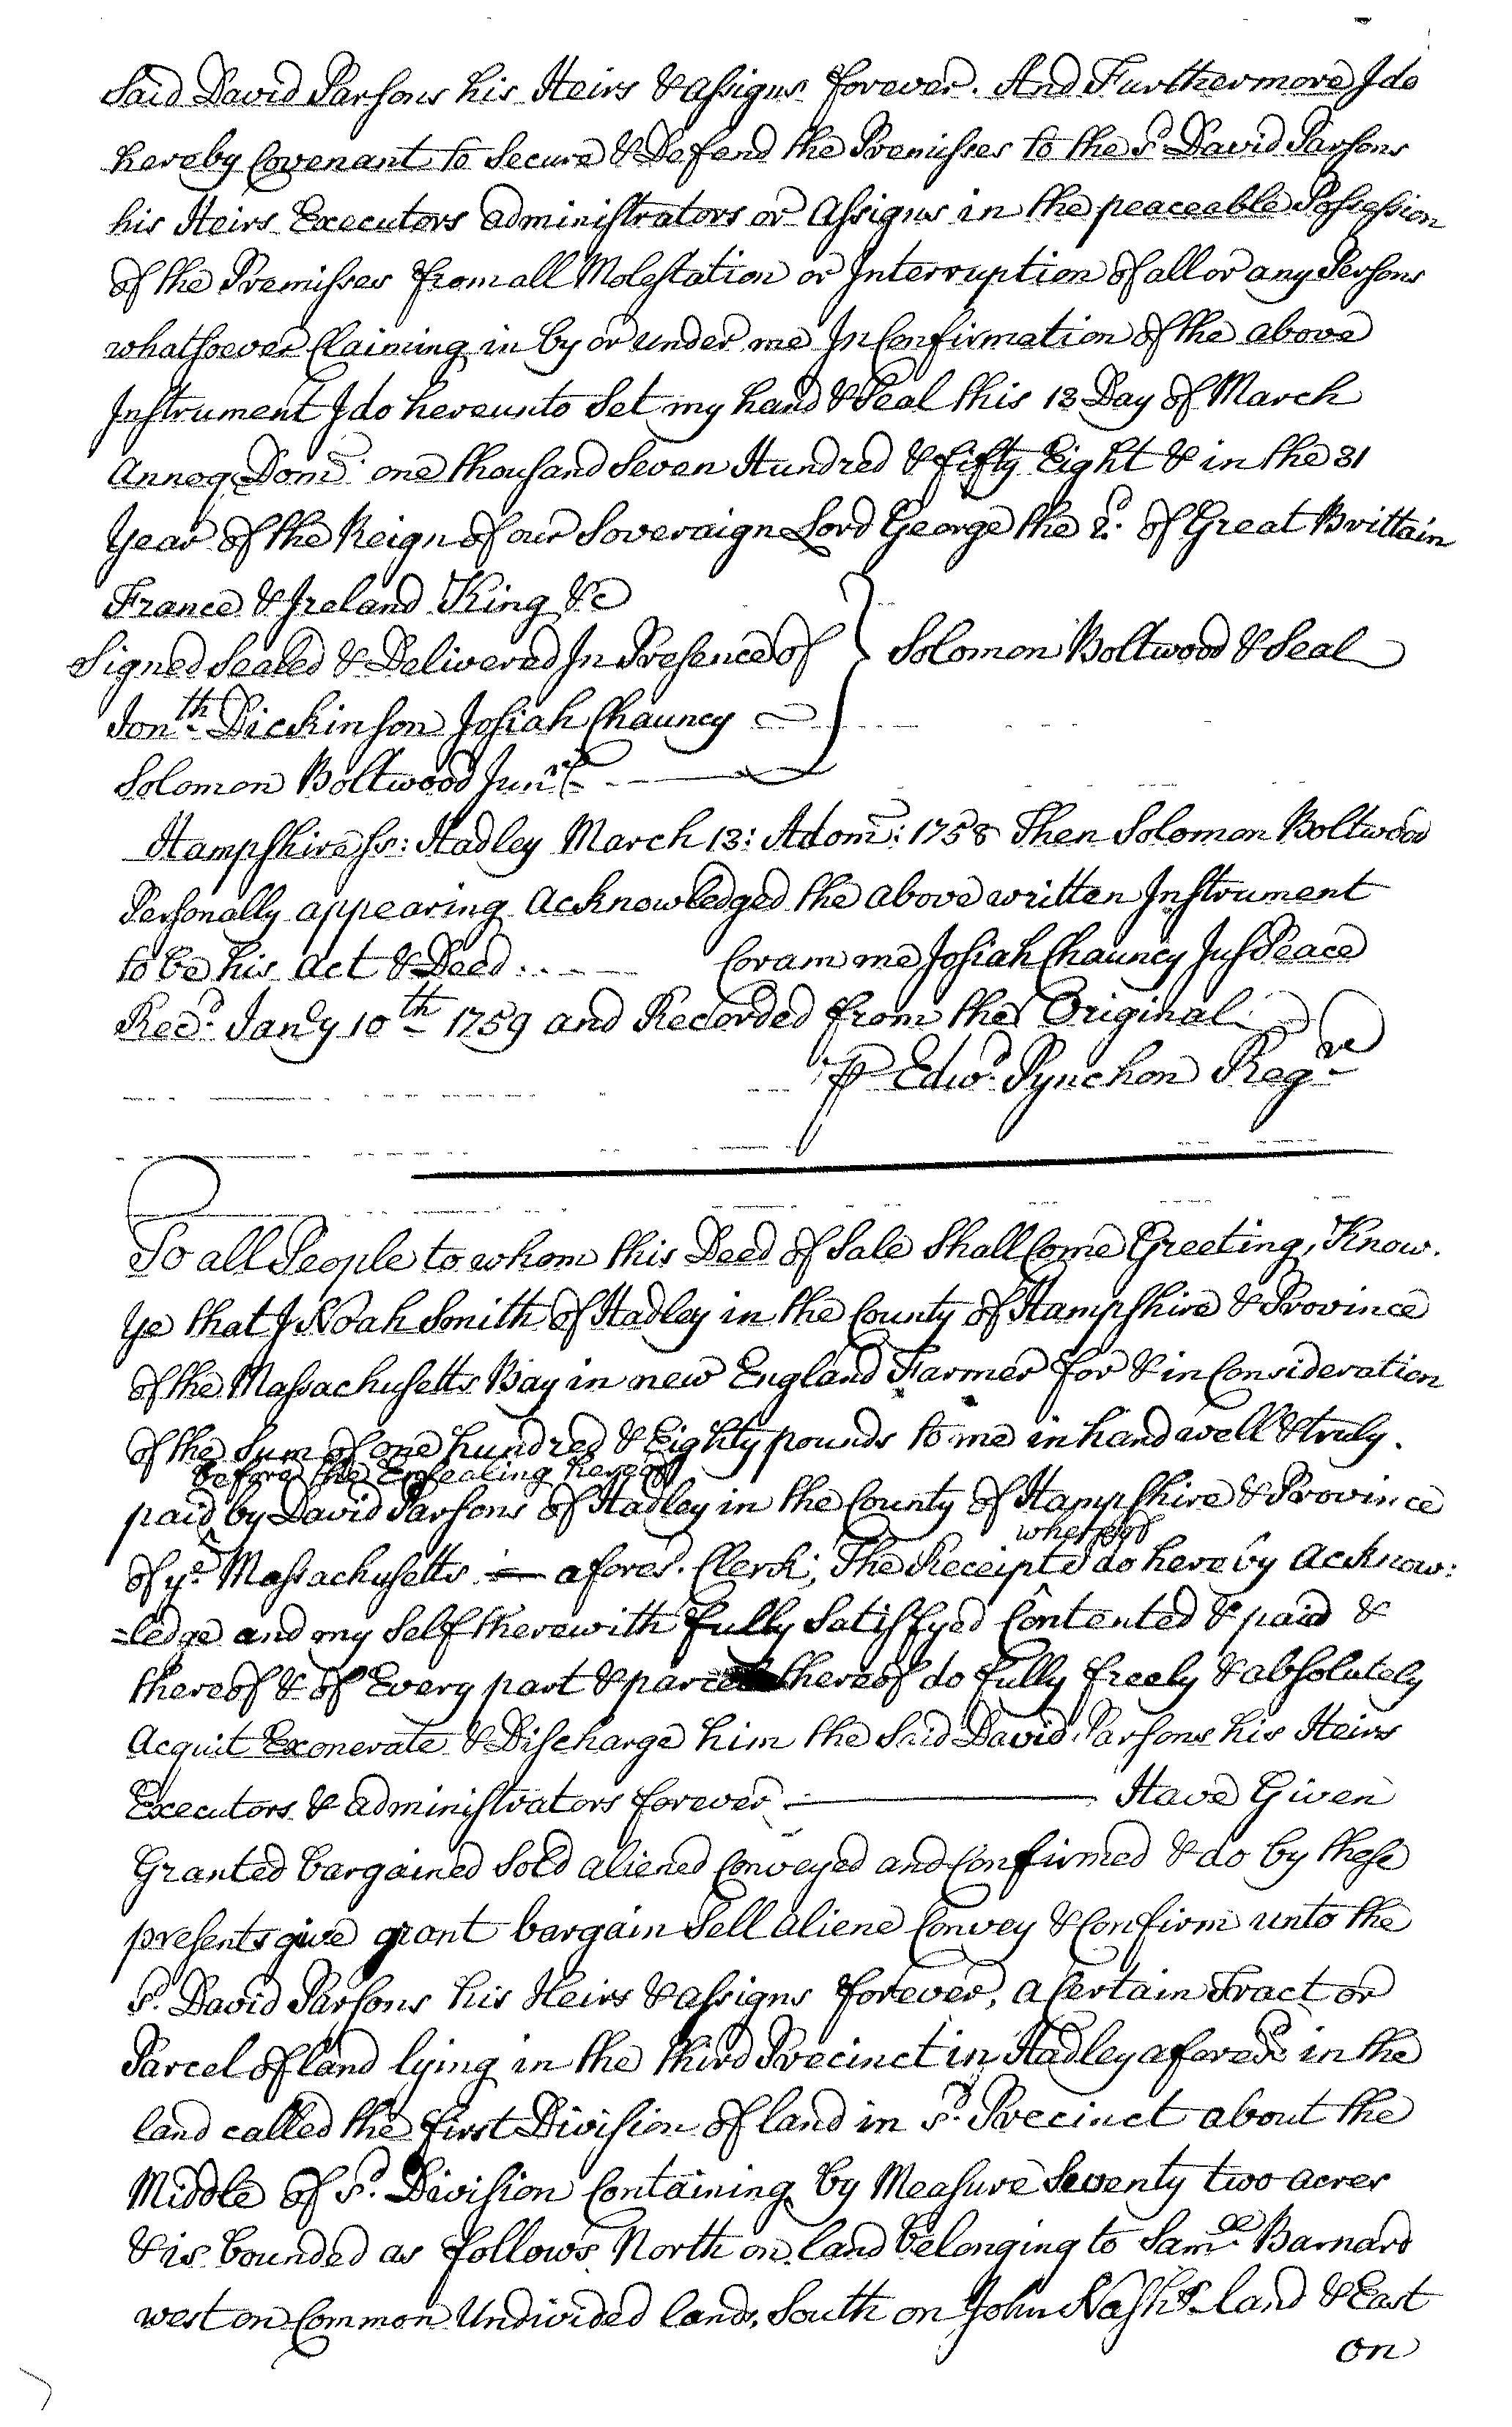 Said David Parsons his Heirs & assigns forever. And Furthermore I do
hereby Covenant to Secure & Defend the Premisses to the sd. David Parsons
his Heirs Executors administrators or assigns in the peaceable Possession
of the Premisses from all Molestation or Interruption of all or any Persons
whatsoever Claiming in by or under me In Confirmation of the above
Instrument I do hereunto Set my hand & Seal this 13 Day of March
Annoq Domi: one thousand Seven Hundred & fifty Eight & in the 31
Year of the Reign of our Soveraign Lord George the 2d. of Great Brittain
France & Ireland King &c
Signed Sealed & Delivered In Presence of } Solomon Boltwood & Seal
Jonth. Dickinson Josiah Chauncy
Solomon Boltwood Junr.
Hampshire ss: Hadley March 13: Adom: 1758 Then Solomon Boltwood
Personally appearing Acknowledged the above written Instrument
to be his act & Deed . . . . Coram me Josiah Chauncy Jus Peace
Recd. Jany 10th 1759 and Recorded from the Original
P Edwd. Pynchon Regr.
To all People to whom this Deed of Sale Shall Come Greeting, Know.
Ye that I Noah Smith of Hadley in the County of Hampshire & Province
of the Massachusetts Bay in new England Farmer for & in Consideration
of the Sum of one hundred & Eighty pounds to me in hand well & truly.
before the Ensealing hereof
paid by David Parsons of Hadley in the County of Hampshire & Province
whereof
of ye. Massachusetts afores. Clerk; The Receipt do hereby Acknow:
=ledge and my Self therewith fully Satisfyed Contented & paid &
thereof & of Every part & parcel thereof do fully freely & absolutely
Acquit Exonerate & Discharge him the Said David Parsons his Heirs
Executors & administrators forever Have Given
Granted bargained Sold aliened Conveyed and Confirmed & do by these
presents give grant bargain Sell aliene Convey & Confirm unto the
sd. David Parsons his Heirs & assigns forever, a Certain Tract or
Parcel of land lying in the third Precinct in Hadley aforesd. in the
land called the first Division of land in sd. Precinct about the
Middle of sd. Division Containing by Measure Seventy two acres
& is bounded as follows North on land belonging to Saml. Barnard
west on Common Undivided land, South on John Nash's land & East
on